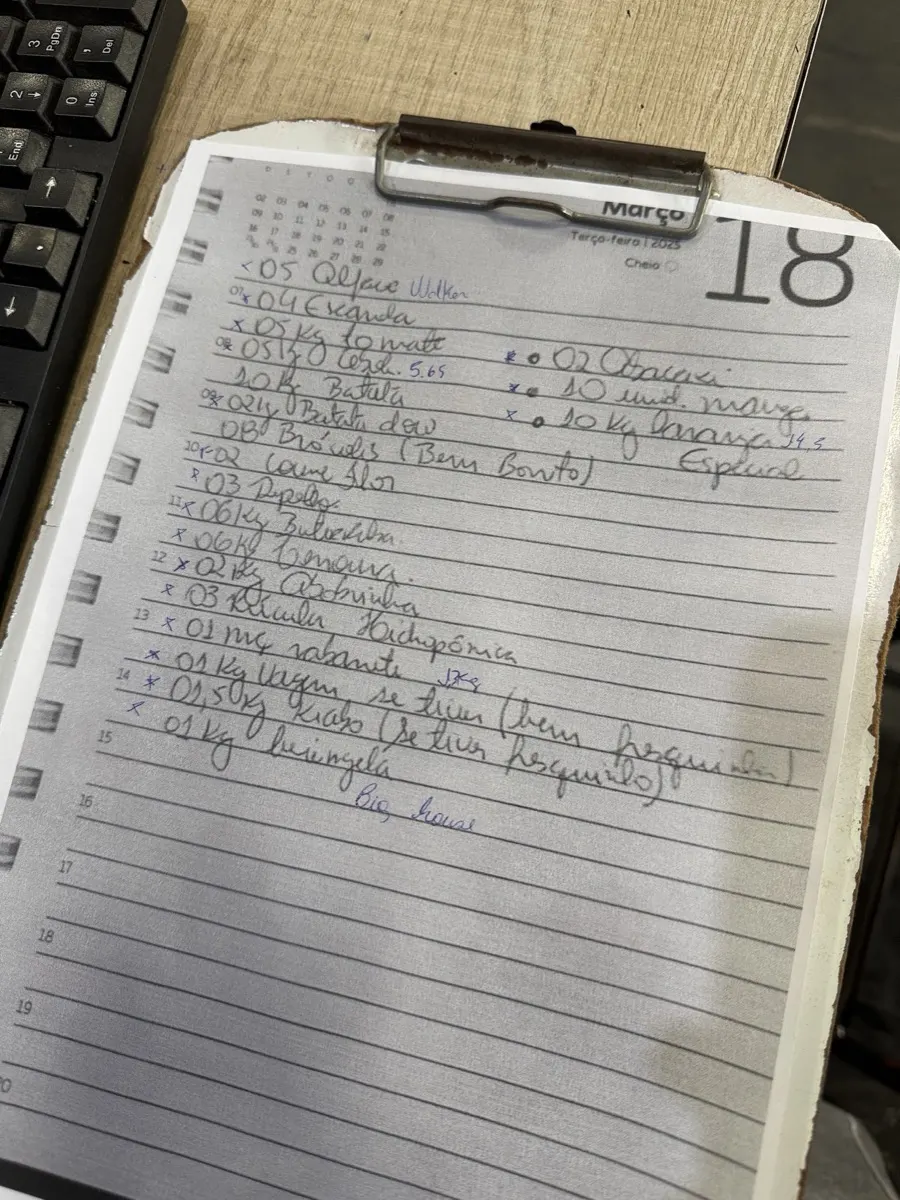 3 PgDn
, Del
2
0 Ins
End
Março
18
Terça-feira | 2025
Cheia
02 03 04 05 06 07 08
09 10 11 12 13 14 15
16 17 18 19 20 21 22
25 26 27 28 29
05 Alface Walker
07 04 Escarola
05 Kg tomate
08 5.65
10 Kg Batata
09 02 Kg Batata doce
08 Brócolis (Bem Bonito)
10 02 Couve flor
03 Repolho
11 06 Kg
06 Kg
12 02 Kg Abobrinha
03 Rúcula Hidropônica
13 01 mç rabanete
01 Kg Vagem se tiver (bem fresquinha)
14 01,50 Kg kiabo (se tiver fresquinho)
01 Kg beringela
15
Big house
16
17
18
19
20
02 Abacaxi
10 unid. manga
10 Kg laranja 14,5
Especial